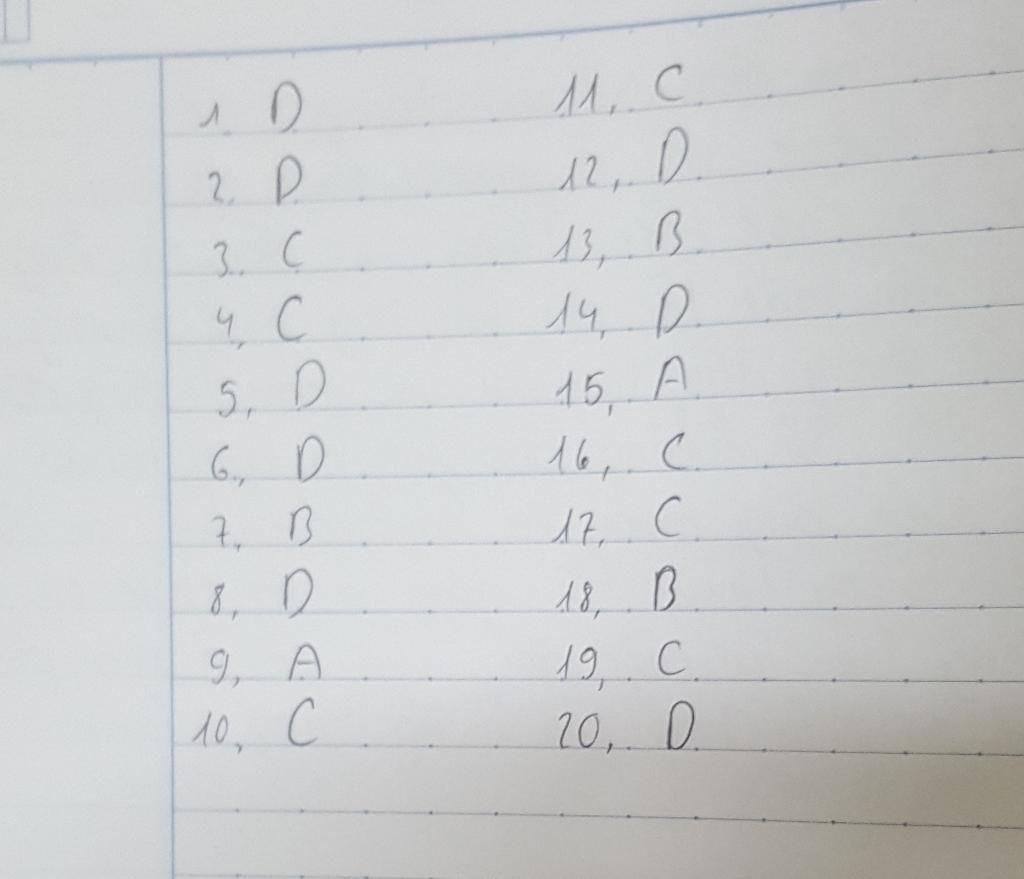 1. D
2. D
3. C
4, C
5, D
6, D
7, B
8, D
9, A
10, C
11, C
12, D
13, B
14, D
15, A
16, C
17, C
18, B
19, C
20, D